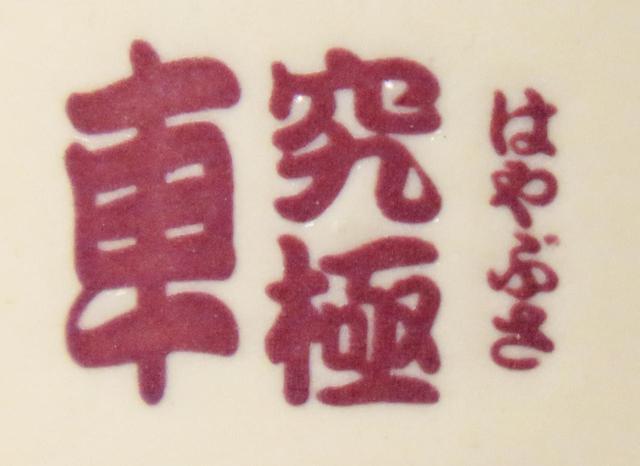 はやぶさ
究極
車